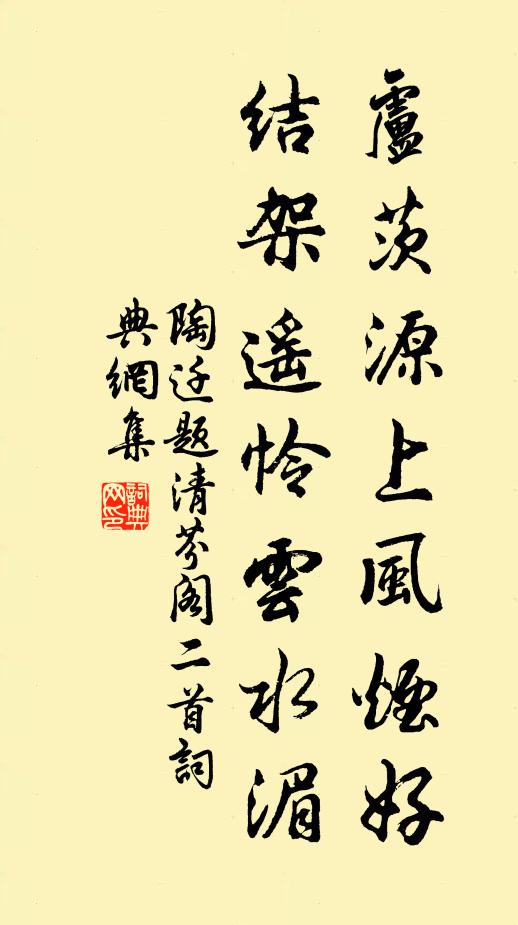 盧茨源上風煙好
結架遥怜雲水湄
陶迁題清芬阁二首詞
典網集
詞典
网印